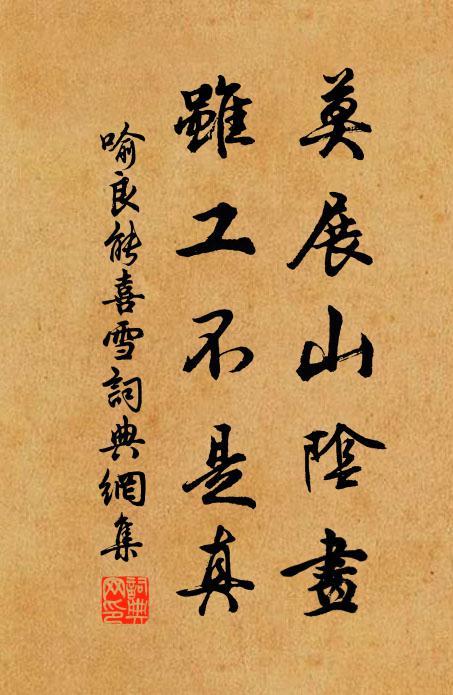 莫展山陰畫
雖工不是真
喻良能喜雪詞典網集
詞典網印